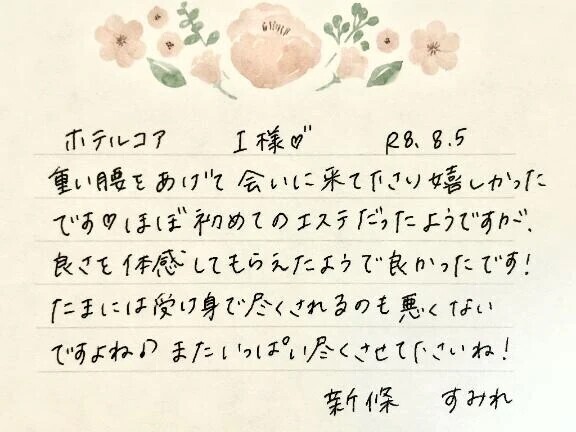 ホテルコア I様♡ R8. 8. 5
重い腰をあげて会いに来て下さり嬉しかった
です♡ほぼ初めてのエステだったようですが、
良さを体感してもらえたようで良かったです!
たまには受け身で尽くされるのも悪くない
ですよね♪またいっぱい尽くさせて下さいね!
新條 すみれ